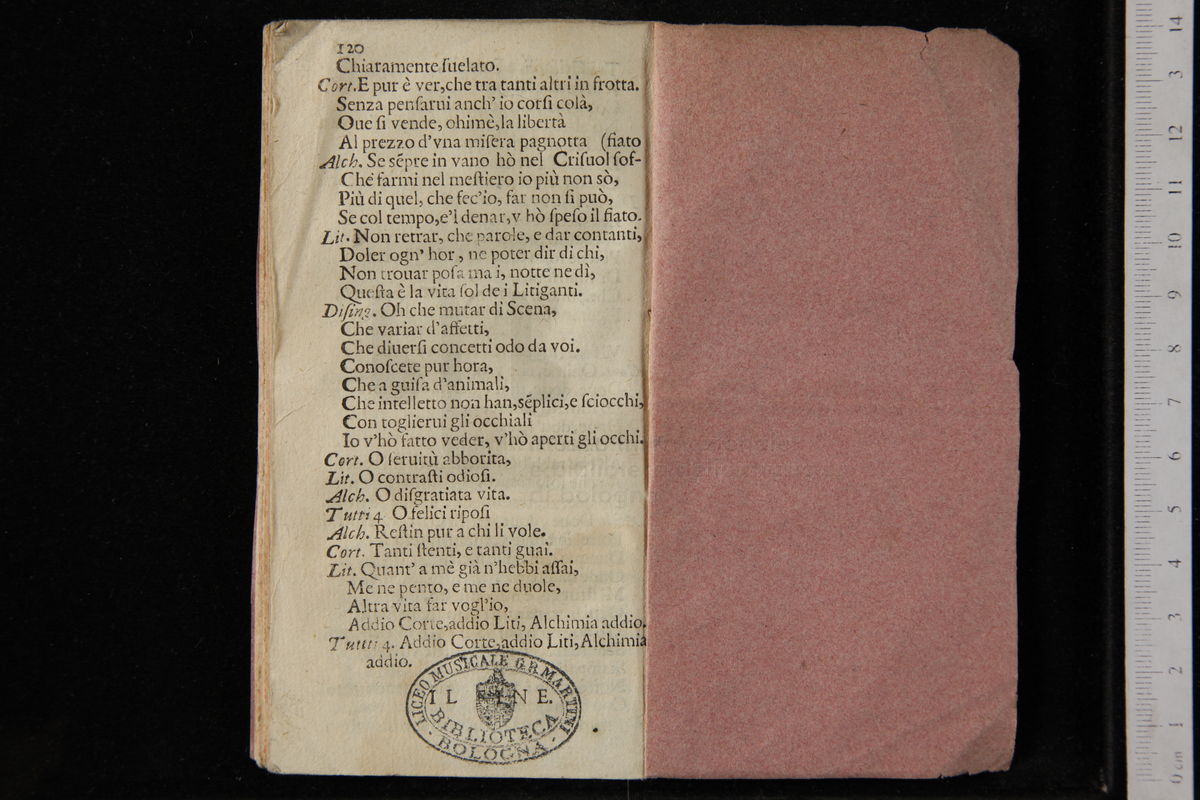 120
Chiaramente ſuelato.
Cort. E pur è ver,che tra tanti altri in frotta.
Senza penſarui anch' io corſi colà,
Oue ſi vende, ohimè,la libertà
Al prezzo d'vna miſera pagnotta (fiato
Alch. Se sẽpre in vano hò nel Criſuol ſof-
Che farmi nel meſtiero io più non sò,
Più di quel, che fec'io, far non ſi può,
Se col tempo,e'l denar,v hò ſpeſo il fiato.
Lit. Non retrar, che parole, e dar contanti,
Doler ogn' hor , ne poter dir di chi,
Non trouar poſa ma i, notte ne dì,
Queſta è la vita ſol de i Litiganti.
Diſing. Oh che mutar di Scena,
Che variar d'affetti,
Che diuerſi concetti odo da voi.
Conoſcete pur hora,
Che a guiſa d'animali,
Che intelletto non han,sẽplici,e ſciocchi,
Con toglierui gli occhiali
Io v'hò fatto veder, v'hò aperti gli occhi.
Cort. O ſeruitù abborita,
Lit. O contraſti odioſi.
Alch. O diſgratiata vita.
Tutti 4 O felici ripoſi
Alch. Reſtin pur a chi li vole.
Cort. Tanti ſtenti, e tanti guai.
Lit. Quant' a mè già n'hebbi aſſai,
Me ne pento, e me ne duole,
Altra vita far vogl'io,
Addio Corte,addio Liti, Alchimia addio.
Tutti 4. Addio Corte,addio Liti,Alchimia
addio.
IL FINE.
LICEO MUSICALE G.B. MARTINI
BIBLIOTECA
BOLOGNA
14
3
12
11
10
9
8
7
6
5
4
3
2
1
0 cm